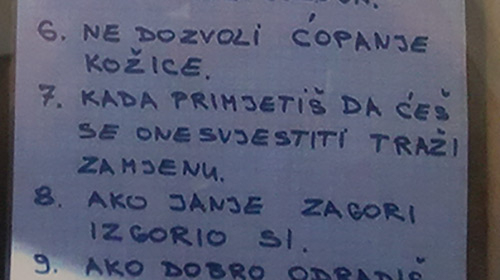 6. NE DOZVOLI ĆOPANJE
KOŽICE.
7. KADA PRIMJETIŠ DA ĆEŠ
SE ONESVJESTITI TRAŽI
ZAMJENU.
8. AKO JANJE ZAGORI
IZGORIO SI.
9. AKO DOBRO ODRADIŠ